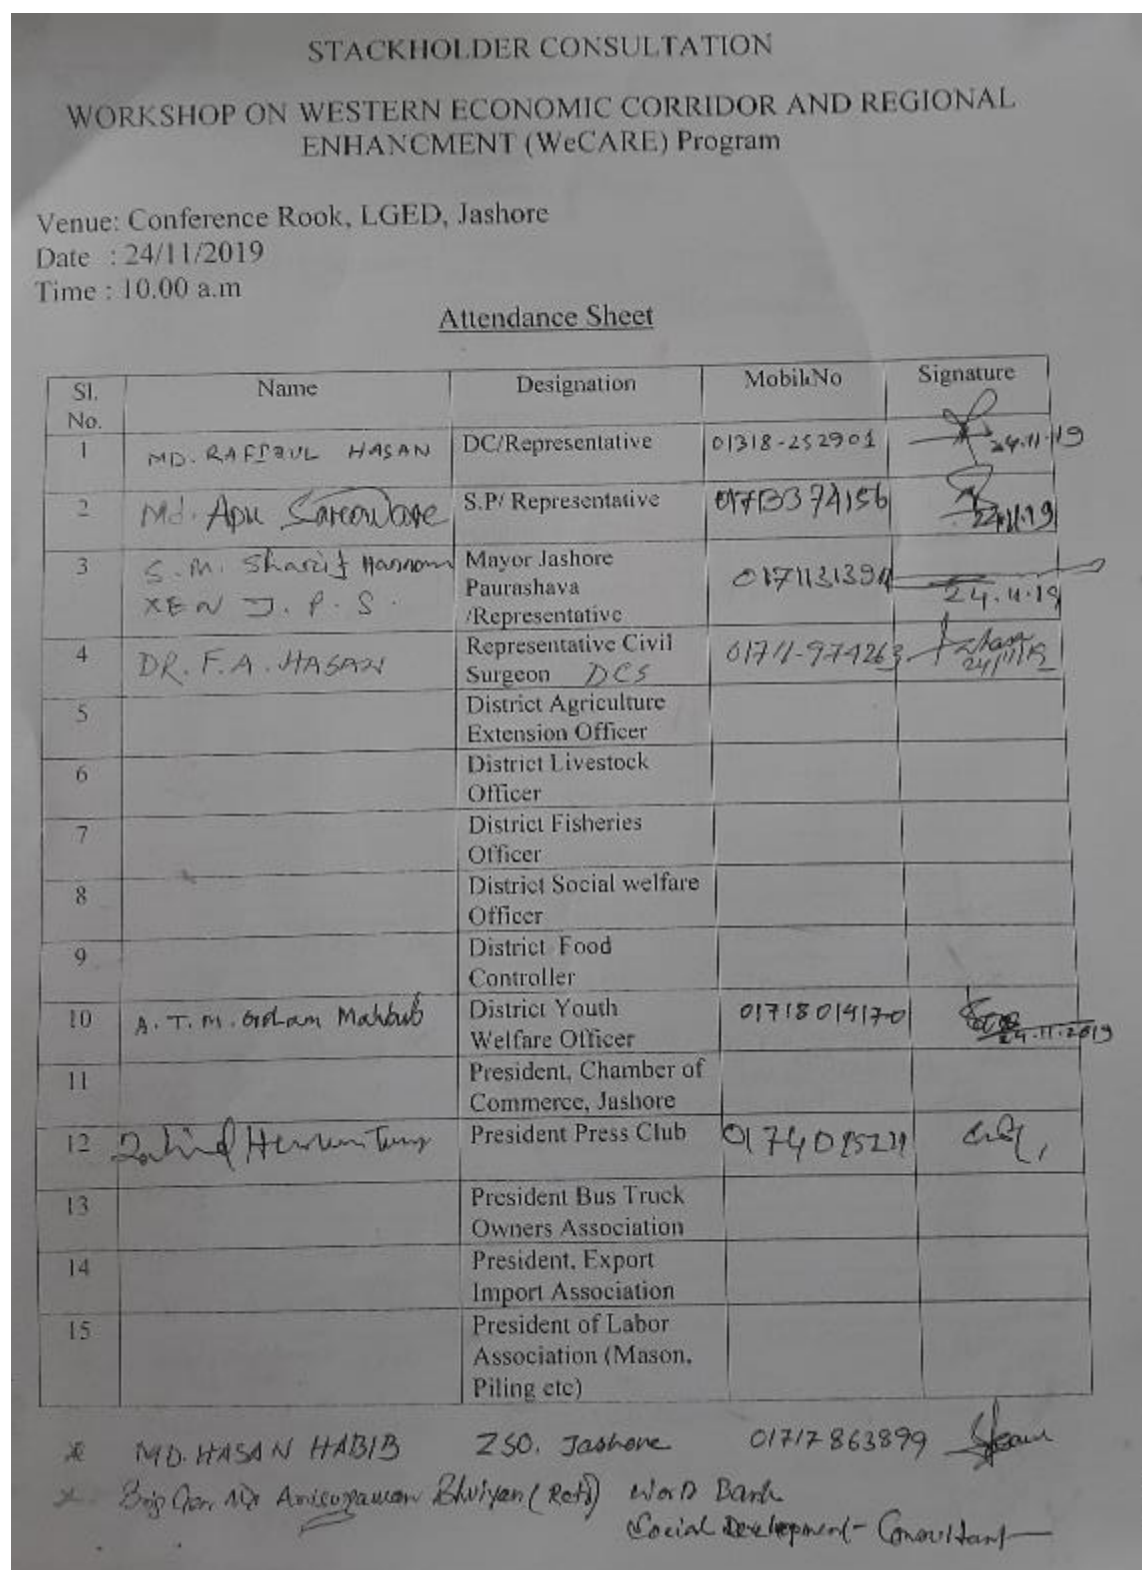 STACKHOLDER CONSULTATION
WORKSHOP ON WESTERN ECONOMIC CORRIDOR AND REGIONAL
ENHANCMENT (WeCARE) Program
Venue: Conference Rook, LGED, Jashore
Date : 24/11/2019
Time : 10.00 a.m
Attendance Sheet
Sl. No. Name Designation Mobile No Signature
1 MD. RAFIZUL HASAN DC/Representative 01318-252901 24.11.19
2 Md. Apu Sarowar S.P/ Representative 24.11.19
3 S. M. Sharif Hassan Mayor Jashore
XEN J. P. S. Paurashava
/Representative 24.11.19
4 DR. F. A. HASAN Representative Civil 01711-974263
Surgeon DCS 24/11/19
5 District Agriculture
Extension Officer
6 District Livestock
Officer
7 District Fisheries
Officer
8 District Social welfare
Officer
9 District Food
Controller
10 A. T. M. Golam Mahbub District Youth 01718014170
Welfare Officer 24.11.2019
11 President, Chamber of
Commerce, Jashore
12 President Press Club
13 President Bus Truck
Owners Association
14 President, Export
Import Association
15 President of Labor
Association (Mason,
Piling etc)
MD. HASAN HABIB ZSO. Jashore 01717863899
Brig Gen Md Anisuzzaman Bhuiyan (Retd) World Bank
Social Development Consultant